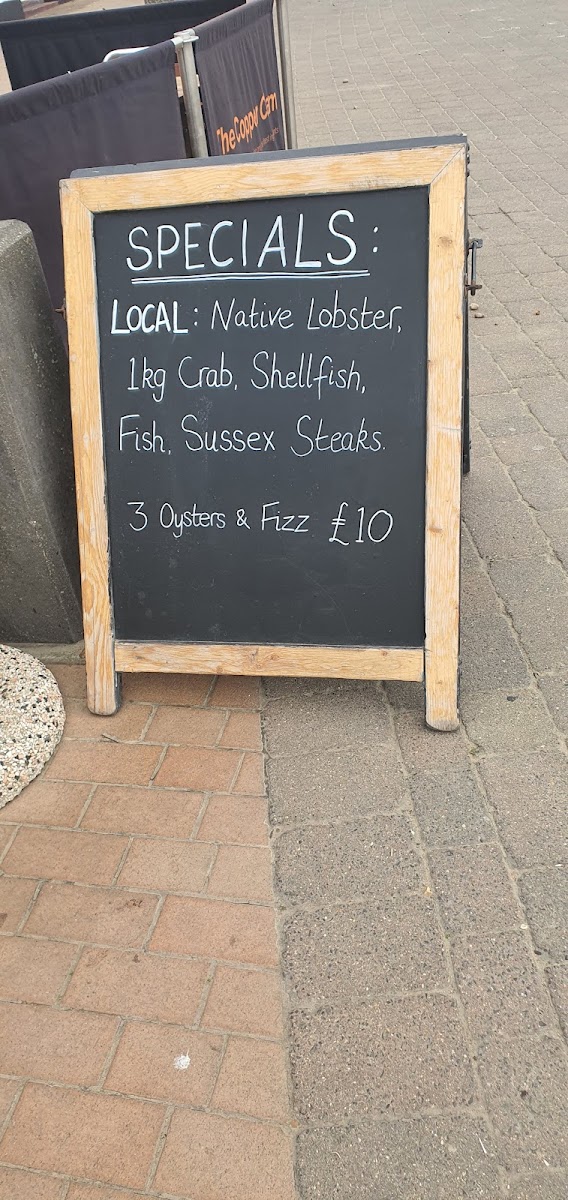 The Copper Clam
SPECIALS:
LOCAL: Native Lobster,
1kg Crab, Shellfish,
Fish, Sussex Steaks.
3 Oysters & Fizz £10